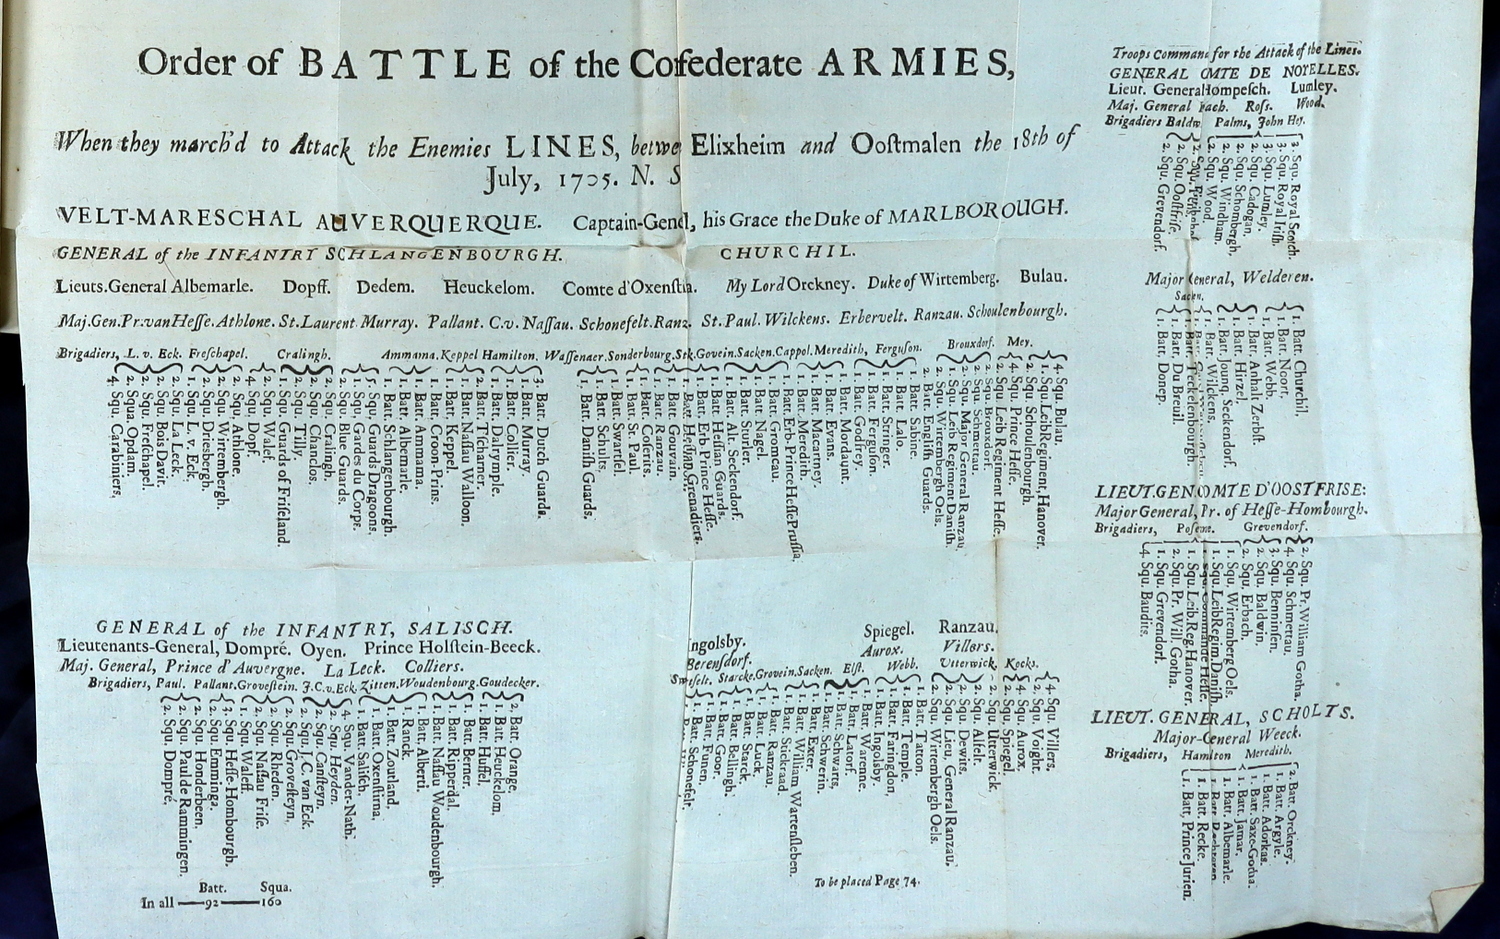 Order of BATTLE of the Cofederate ARMIES,
When they march'd to Attack the Enemies LINES, betwe Elixheim and Oostmalen the 18th of
July, 1705. N. S
VELT-MARESCHAL AUVERQUERQUE. Captain-Genel, his Grace the Duke of MARLBOROUGH.
GENERAL of the INFANTRY SCHLANGENBOURGH. CHURCHIL.
Lieuts.General Albemarle. Dopff. Dedem. Heuckelom. Comte d'Oxenstia. My Lord Orckney. Duke of Wirtemberg. Bulau.
Maj.Gen.Pr.van Hesse. Athlone. St.Laurent Murray. Pallant. C.v. Nassau. Schonefelt. Ranz. St. Paul. Wilckens. Erbervelt. Ranzau. Schoulenbourgh.
Brigadiers, L. v. Eck. Freschapel. Cralingh. Ammama. Keppel Hamilton. Wassenaer. Sonderbourg. Stk. Govein. Sacken. Cappol. Meredith, Ferguson. Brouxdorf. Mey.
4. Squ. Carabiniers.
2. Squa. Opdam.
2. Squ. Freschapel.
2. Squ. Bois David.
2. Squ. La Leck.
1. Squ. L. v. Eck.
2. Squ. Driesbergh.
2. Squ. Wirtembergh.
2. Squ. Athlone.
4. Squ. Dopf.
2. Squ. Walef.
1. Squ. Guards of Friseland.
2. Squ. Tilly.
2. Squ. Chanclos.
2. Squ. Cralingh.
2. Squ. Blue Guards.
1. Squ. Gardes du Corps.
5. Squ. Guards Dragoons.
1. Batt. Schlangenbourgh.
1. Batt. Albemarle.
1. Batt. Croon-Prins.
1. Batt. Keppel.
1. Batt. Nassau Walloon.
2. Batt. Tscharner.
1. Batt. Dalrymple.
1. Batt. Collier.
1. Batt. Murray.
3. Batt. Dutch Guards.
1. Batt. Danish Guards.
1. Batt. Schults.
1. Batt. Swartsel.
1. Batt. St. Paul.
1. Batt. Coferits.
1. Batt. Ranzau.
1. Batt. Gouvain.
1. Batt. Hessian Grenadiers.
1. Batt. Erb-Prince Hesse.
1. Batt. Hessian Guards.
1. Batt. Alt. Seckendorf.
1. Batt. Sturler.
1. Batt. Nagel.
1. Batt. Gromcau.
1. Batt. Erb-Prince Hesse Prussia.
1. Batt. Meredith.
1. Batt. Macartney.
1. Batt. Evans.
1. Batt. Mordaunt.
1. Batt. Godfrey.
1. Batt. Ferguson.
1. Batt. Stringer.
1. Batt. Lalo.
1. Batt. Sabine.
2. Batt. English Guards.
2. Squ. Wirtembergh Oels.
2. Squ. Leib Regiment Danish.
2. Squ. Major General Ranzau
2. Squ. Schmettau.
2. Squ. Brouxdorf.
2. Squ. Leib Regiment Hesse.
4. Squ. Prince Hesse.
2. Squ. Schoulenbourgh.
1. Squ. Leib Regiment, Hanover.
4. Squ. Bulau.
GENERAL of the INFANTRY, SALISCH.
Lieutenants-General, Dompré. Oyen. Prince Holstein-Beeck. Ingolsby. Spiegel. Ranzau.
Maj. General, Prince d'Auvergne. La Leck. Colliers. Berensdorf. Aurox. Villars.
Brigadiers, Paul. Pallant. Grovestein. J.C.v.Eck. Zitten. Woudenbourg. Goudecker. Starcke. Grovein. Sacken. Elst. Webb. Utterwick. Kocks.
2. Squ. Dompré.
2. Squ. Paul de Rammingen.
2. Squ. Honderbeen.
2. Squ. Emminga.
3. Squ. Hesse-Hombourgh.
1. Squ. Waleff.
2. Squ. Nassau Frise.
2. Squ. Rheden.
2. Squ. Grovesteyn.
2. Squ. J. C. van Eck.
2. Squ. Cansteyn.
2. Squ. Heyden.
4. Squ. Vander-Nath.
1. Batt. Salisch.
1. Batt. Oxenstirna.
1. Batt. Zoutland.
1. Ranck.
1. Batt. Alberti.
1. Batt. Nassau Woudenbourgh.
1. Batt. Ripperdal.
1. Batt. Berner.
1. Batt. Huffel.
1. Batt. Heuckelom.
2. Batt. Orange.
1. Batt. Schonefelt.
1. Batt. Funen.
1. Batt. Goor.
1. Batt. Bellingh.
1. Batt. Starck.
1. Batt. Luck.
1. Batt. Ranzau.
1. Batt. Stickraad.
1. Batt. William Wartensleben.
1. Batt. Exter.
1. Batt. Schwerin.
1. Batt. Schwarts.
1. Batt. Latorf.
1. Batt. Warenne.
1. Batt. Ingolsby.
1. Batt. Faringdon.
1. Batt. Temple.
1. Batt. Tatton.
2. Squ. Wirtembergh Oels.
2. Squ. Lieu, General Ranzau,
2. Squ. Dewits.
2. Squ. Alfelt.
2. Squ. Utterwick.
2. Squ. Spiegel.
4. Squ. Aurox.
2. Squ. Voight.
4. Squ. Villers.
Batt. Squa.
In all —92— —160
To be placed Page 74.
Troops Command for the Attack of the Lines.
GENERAL OMTE DE NOYELLES.
Lieut. General Hompesch. Lumley.
Maj. General Pach. Ross. Wood.
Brigadiers Baldw Palms, John Hey.
2. Squ. Grevendorf.
2. Squ. Oostfrise.
2. Squ. Wood.
2. Squ. Windham.
2. Squ. Schombergh.
2. Squ. Cadogan.
3. Squ. Lumley.
3. Squ. Royal Irish.
3. Squ. Royal Scotch.
Major General, Welderen.
Sacken.
1. Batt. Donep.
1. Batt. Du Breuil.
1. Batt. Teckelenbourgh.
1. Batt. Wilckens.
1. Batt. Joung Seckendorf.
1. Batt. Hirzel.
1. Batt. Anhalt Zerbst.
1. Batt. Webb.
1. Batt. Noort.
1. Batt. Churchil.
LIEUT.GEN OMTE D'OOSTFRISE:
Major General, Pr. of Hesse-Hombourgh.
Brigadiers, Posem. Grevendorf.
4. Squ. Baudits.
1. Squ. Grevendorf.
2. Squ. Pr. Will. Gotha.
1. Squ. Leib Reg. Hanover.
1. Squ. Leib Regim. Danish
1. Squ. Wirtemberg Oels.
2. Squ. Erbach.
2. Squ. Baldwin.
3. Squ. Benninsen.
4. Squ. Schmettau.
2. Squ. Pr. William Gotha.
LIEUT. GENERAL, SCHOLTS.
Major-General Weeck.
Brigadiers, Hamilton Meredith.
1. Batt. Prince Jurien.
1. Batt. Recke.
1. Batt. Albemarle.
1. Batt. Jamar.
1. Batt. Saxe-Gotha.
1. Batt. Adorkas.
1. Batt. Argyle.
2. Batt. Orckney.